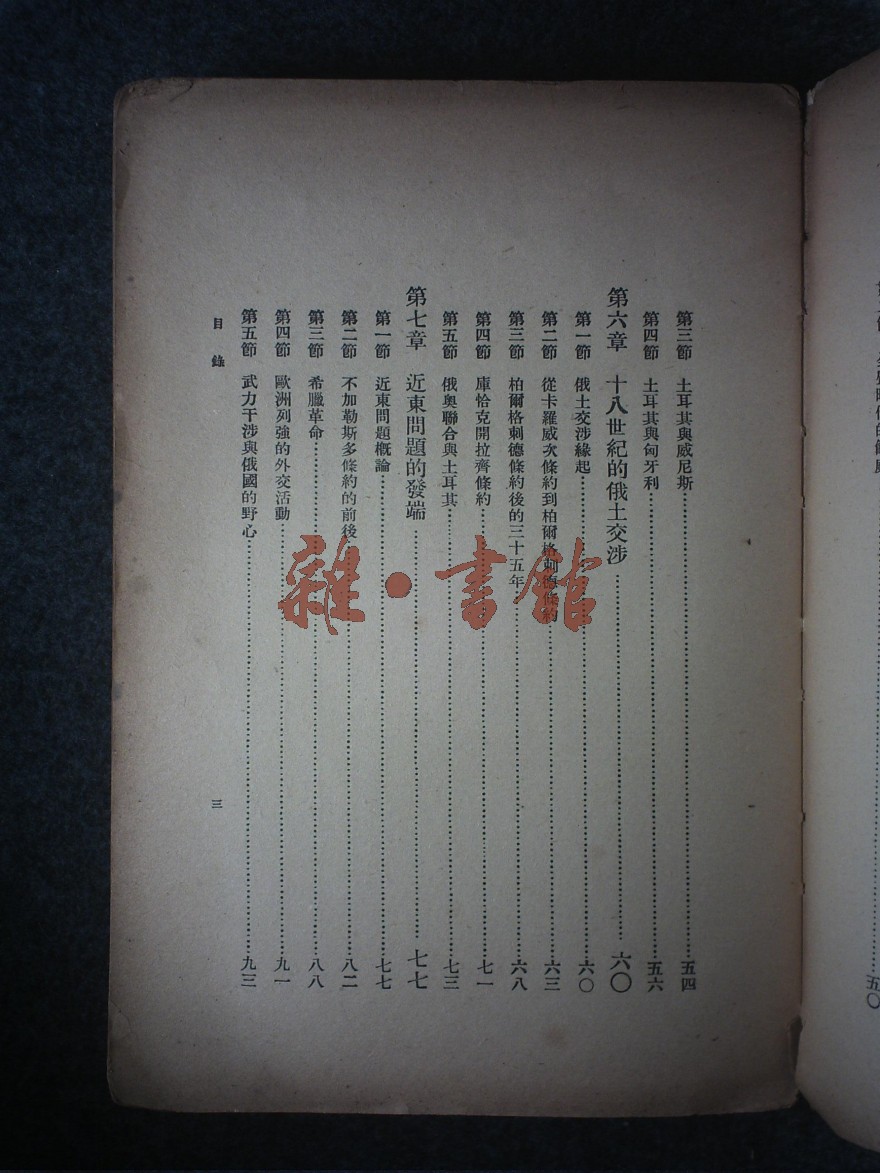 第三節 土耳其與威尼斯……五四
第四節 土耳其與匈牙利……五六
第六章 十八世紀的俄土交涉……六〇
第一節 俄土交涉緣起……六〇
第二節 從卡羅威次條約到柏爾格剌德條約……六三
第三節 柏爾格剌德條約後的三十五年……六八
第四節 庫恰克開拉齊條約……七一
第五節 俄奧聯合與土耳其……七三
第七章 近東問題的發端……七七
第一節 近東問題概論……七七
第二節 不加勒斯多條約的前後……八二
第三節 希臘革命……八八
第四節 歐洲列強的外交活動……九一
第五節 武力干涉與俄國的野心……九三
目錄
三
雜·書館
五〇